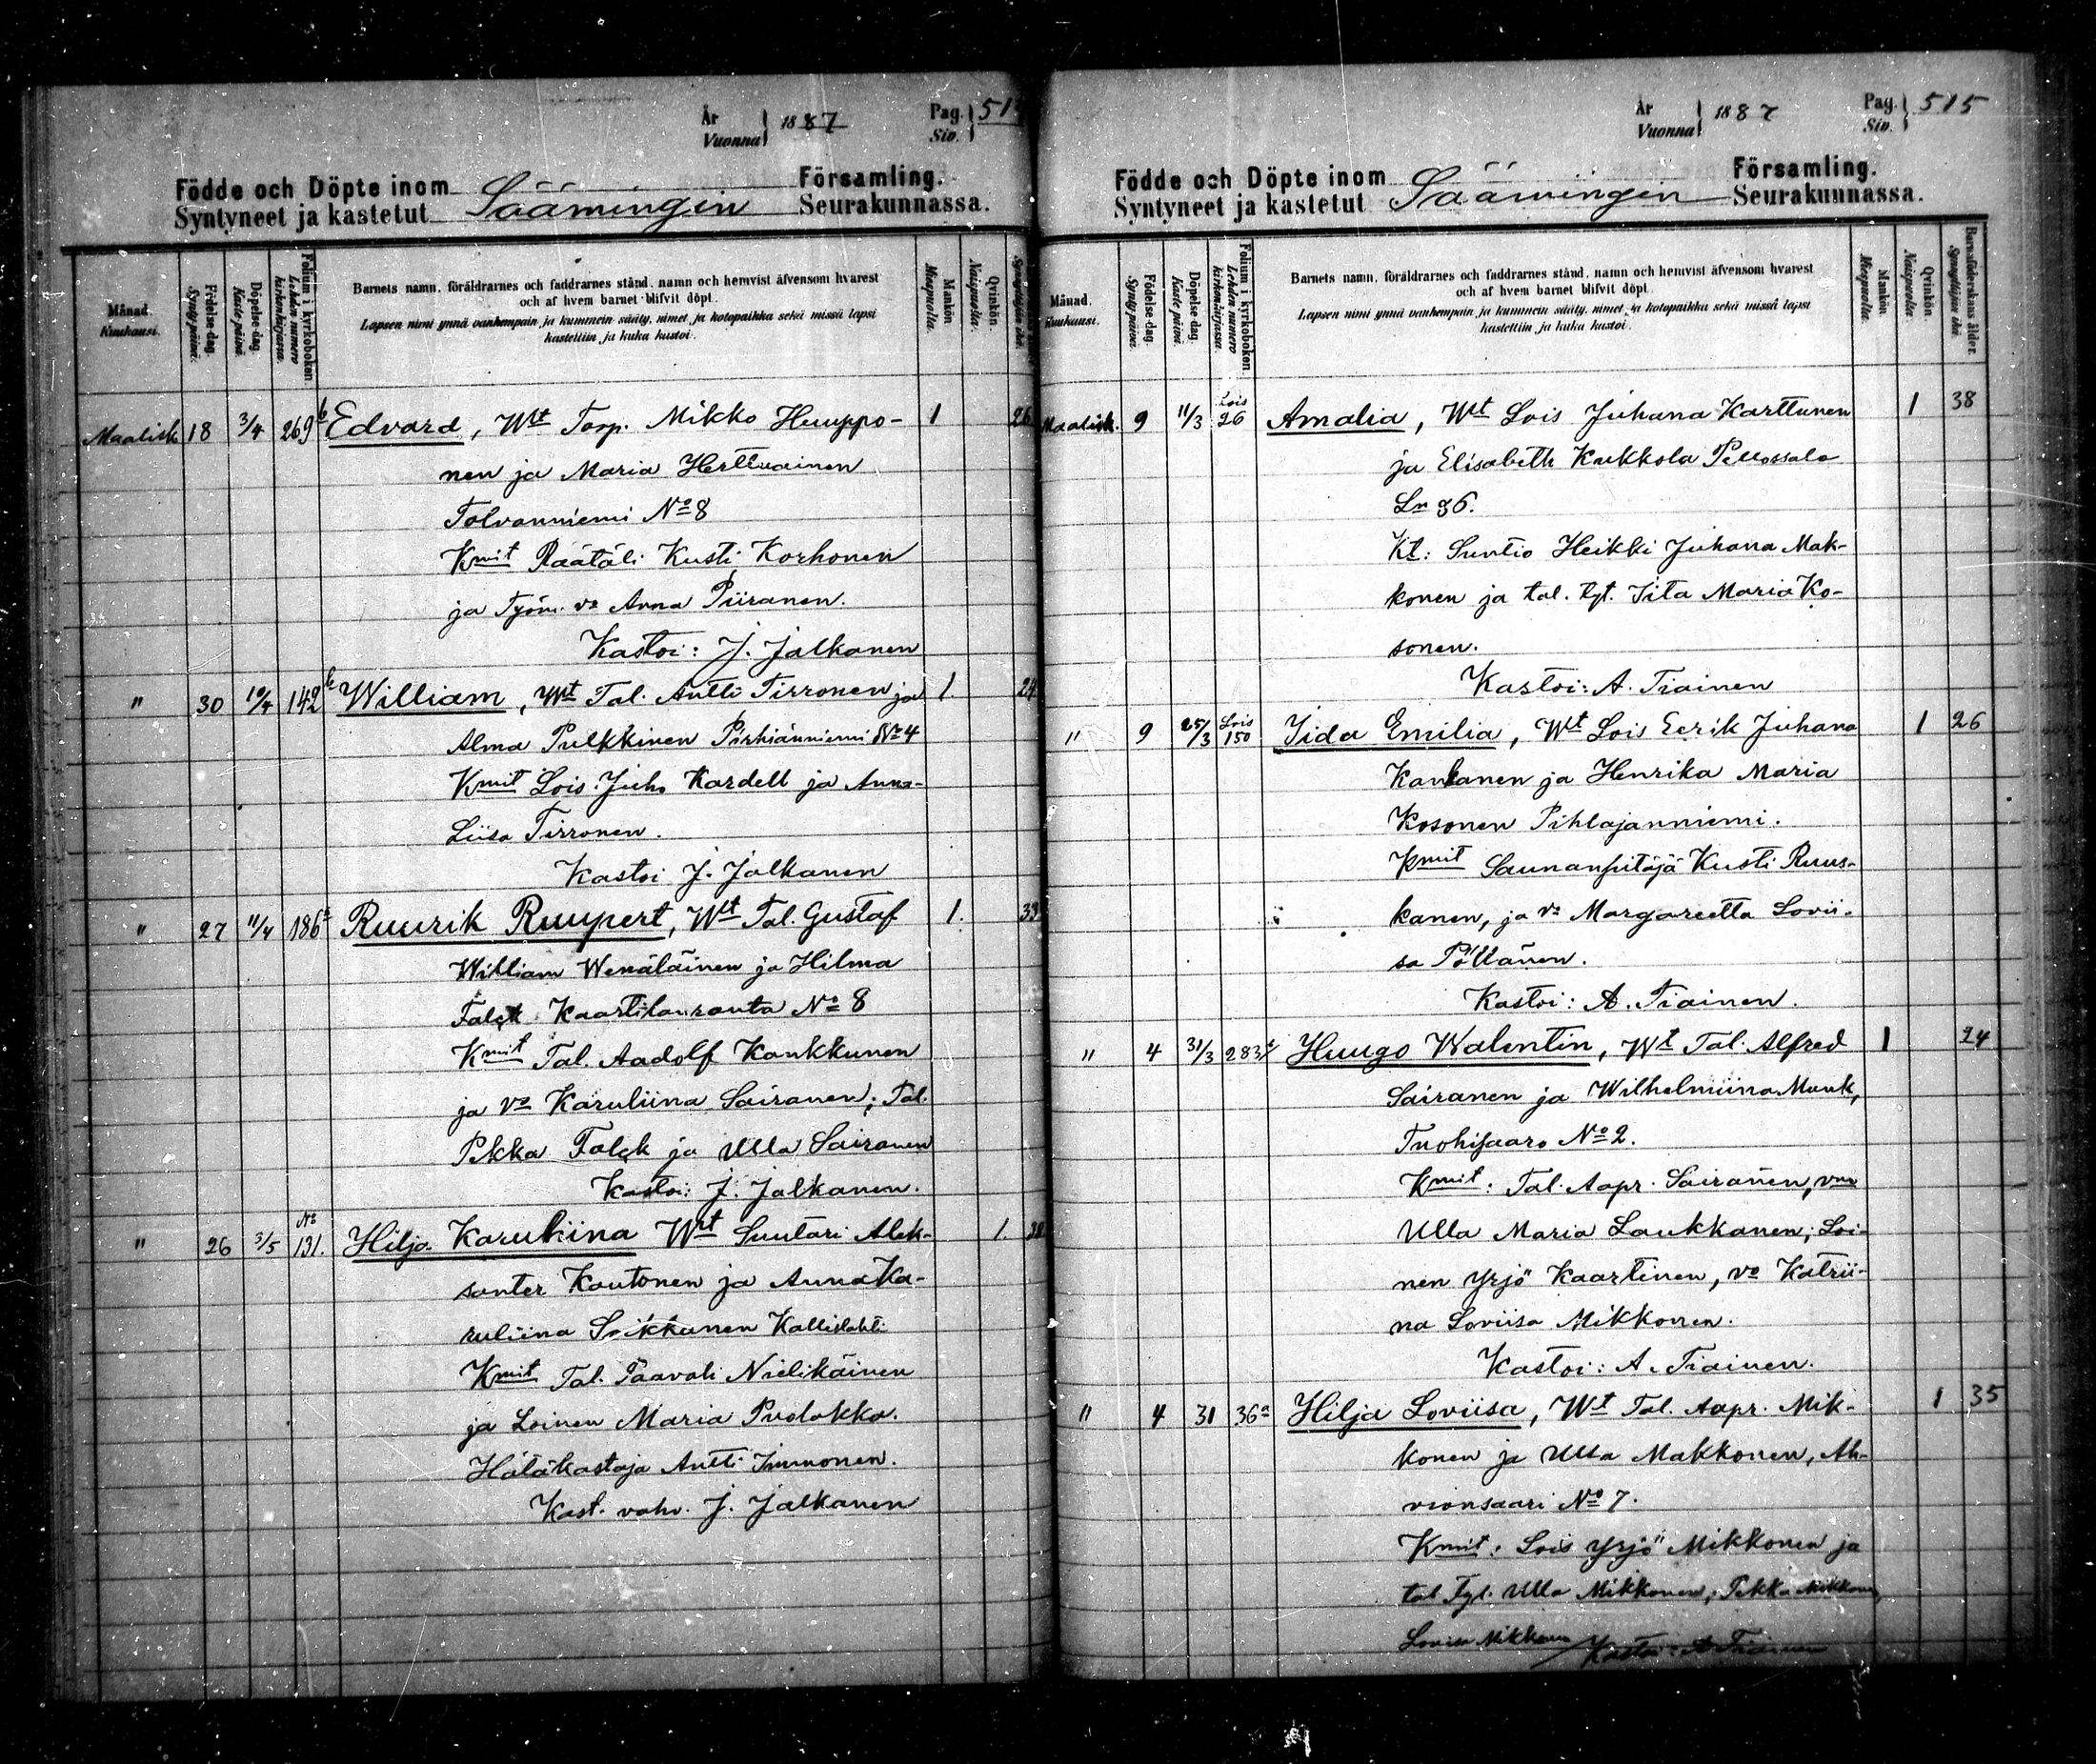 År
Vuonna } 1887
Pag.
Siv. } 514
Födde och Döpte inom Säämingin Församling.
Syntyneet ja kastetut Seurakunnassa.
Månad. Kuukausi.
Födelse-dag. Syntypäivä.
Döpelse-dag. Kaste-päivä.
Folium i kyrkoboken. Lehden numero kirkonkirjassa.
Barnets namn, föräldrarnes och faddrarnes stånd, namn och hemvist äfvensom hvarest
och af hvem barnet blifvit döpt.
Lapsen nimi ynnä vanhempain ja kummein sääty, nimet ja kotopaikka sekä missä lapsi
kastettiin ja kuka kastoi.
Mankön. Miespuolia.
Qvinkön. Naispuolia.
Maalisk 18 3/4 269 b Edvard, Wt Torp. Mikko Huuppo- 1 26
nen ja Maria Herttuainen
Tolvanniemi No 8
Kmit Räätäli Kusti Korhonen
ja Työm. vo Anna Piiranen.
Kastoi: J. Jalkanen
" 30 10/4 142 b William, Wt Tal. Antti Tirronen ja 1. 24
Alma Pulkkinen Pirhiänniemi No 4
Kmit Lois. Juho Kardell ja Anna-
Liisa Tirronen.
Kastoi J. Jalkanen
" 27 11/4 186 a Ruurik Ruupert, Wt Tal. Gustaf 1. 33
William Wenäläinen ja Hilma
Falck Kaartilanranta No 8
Kmit Tal. Aadolf Kankkunen
ja vo Karuliina Sairanen; Tal.
Pekka Falck ja Ulla Sairanen
Kastoi: J. Jalkanen.
" 26 3/5 No 131. Hilja Karuliina Wt Suutari Alek- 1. 28
santer Kautonen ja Anna Ka-
ruliina Seikkanen Kallislahti
Kmit Tal. Paavali Nielikäinen
ja Loinen Maria Puolakka.
Hätäkastaja Antti Immonen.
Kast. vahv. J. Jalkanen
År
Vuonna } 1887
Pag.
Siv. } 515
Födde och Döpte inom Säämingin Församling.
Syntyneet ja kastetut Seurakunnassa.
Månad. Kuukausi.
Födelse-dag. Syntypäivä.
Döpelse-dag. Kaste-päivä.
Folium i kyrkoboken. Lehden numero kirkonkirjassa.
Barnets namn, föräldrarnes och faddrarnes stånd, namn och hemvist äfvensom hvarest
och af hvem barnet blifvit döpt.
Lapsen nimi ynnä vanhempain ja kummein sääty, nimet ja kotopaikka sekä missä lapsi
kastettiin ja kuka kastoi.
Mankön. Miespuolia.
Qvinkön. Naispuolia.
Barnaföderskans ålder. Synnyttäjän ikä.
Maalisk. 9 11/3 Lois 26 Amalia, Wt Lois Juhana Karttunen 1 38
ja Elisabeth Kukkola Pellossalo
Ln 36.
Kt: Suntio Heikki Juhana Mak-
konen ja tal. tyt. Iita Maria Ko-
sonen.
Kastoi: A. Tiainen
" 9 25/3 Lois 150 Iida Emilia, Wt Lois Eerik Juhana 1 26
Kankanen ja Henrika Maria
Kosonen Pihlajanniemi.
Kmit Saunanpitäjä Kusti Ruus-
kanen, ja vo Margareetta Lovii-
sa Pöllänen.
Kastoi: A. Tiainen.
" 4 31/3 283 Huugo Walentin, Wt Tal. Alfred 1 24
Sairanen ja Wilhelmiina Munk,
Tuohisaari No 2.
Kmit: Tal. Aapr. Sairanen, vmo
Ulla Maria Laukkanen; Loi-
nen Yrjö Kaartinen, vo Katrii-
na Loviisa Mikkonen.
Kastoi: A. Tiainen.
" 4 31 36 a Hilja Loviisa, Wt Tal. Aapr. Mik- 1 35
konen ja Ulla Makkonen, Ah-
vionsaari No 7.
Kmit: Lois Yrjö Mikkonen ja
tal. tyt. Ulla Mikkonen, Pekka Mikkonen,
Lovisa Mikkonen Kastoi: A Tiainen